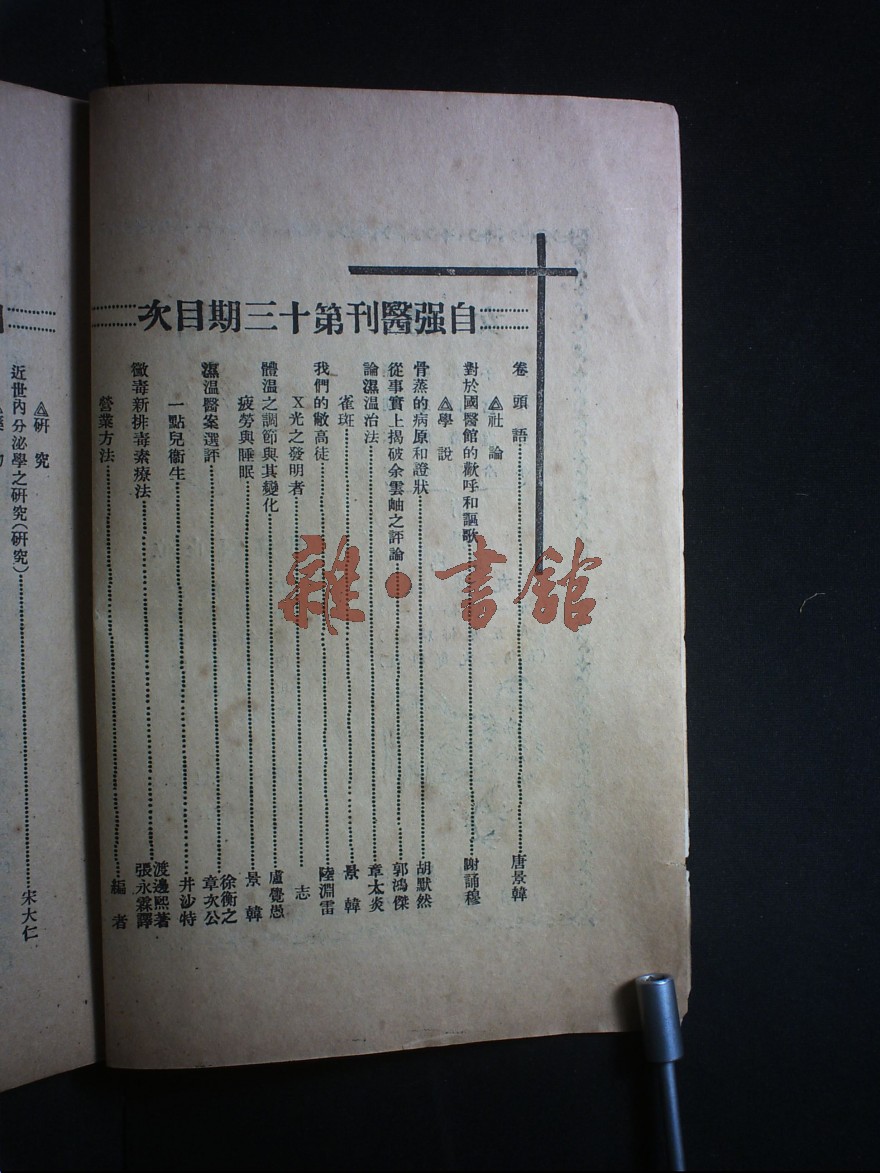 自强醫刊第十三期目次
卷頭語 唐景韓
社論
對於國醫館的歡呼和謳歌 謝誦穆
學說
骨蒸的病原和證狀 胡默然
從事實上揭破余雲岫之評論 郭鴻傑
論濕溫治法 章太炎
雀斑 景韓
我們的敝高徒 陸淵雷
X光之發明者 志
體溫之調節與其變化 盧覺愚
疲勞與睡眠 景韓
濕溫醫案選評 徐衡之 章次公
一點兒衞生 井沙特
黴毒新排毒素療法 渡邊熙著 張永霖譯
營業方法 編者
研究
近世內分泌學之研究(研究) 宋大仁
雜·書館